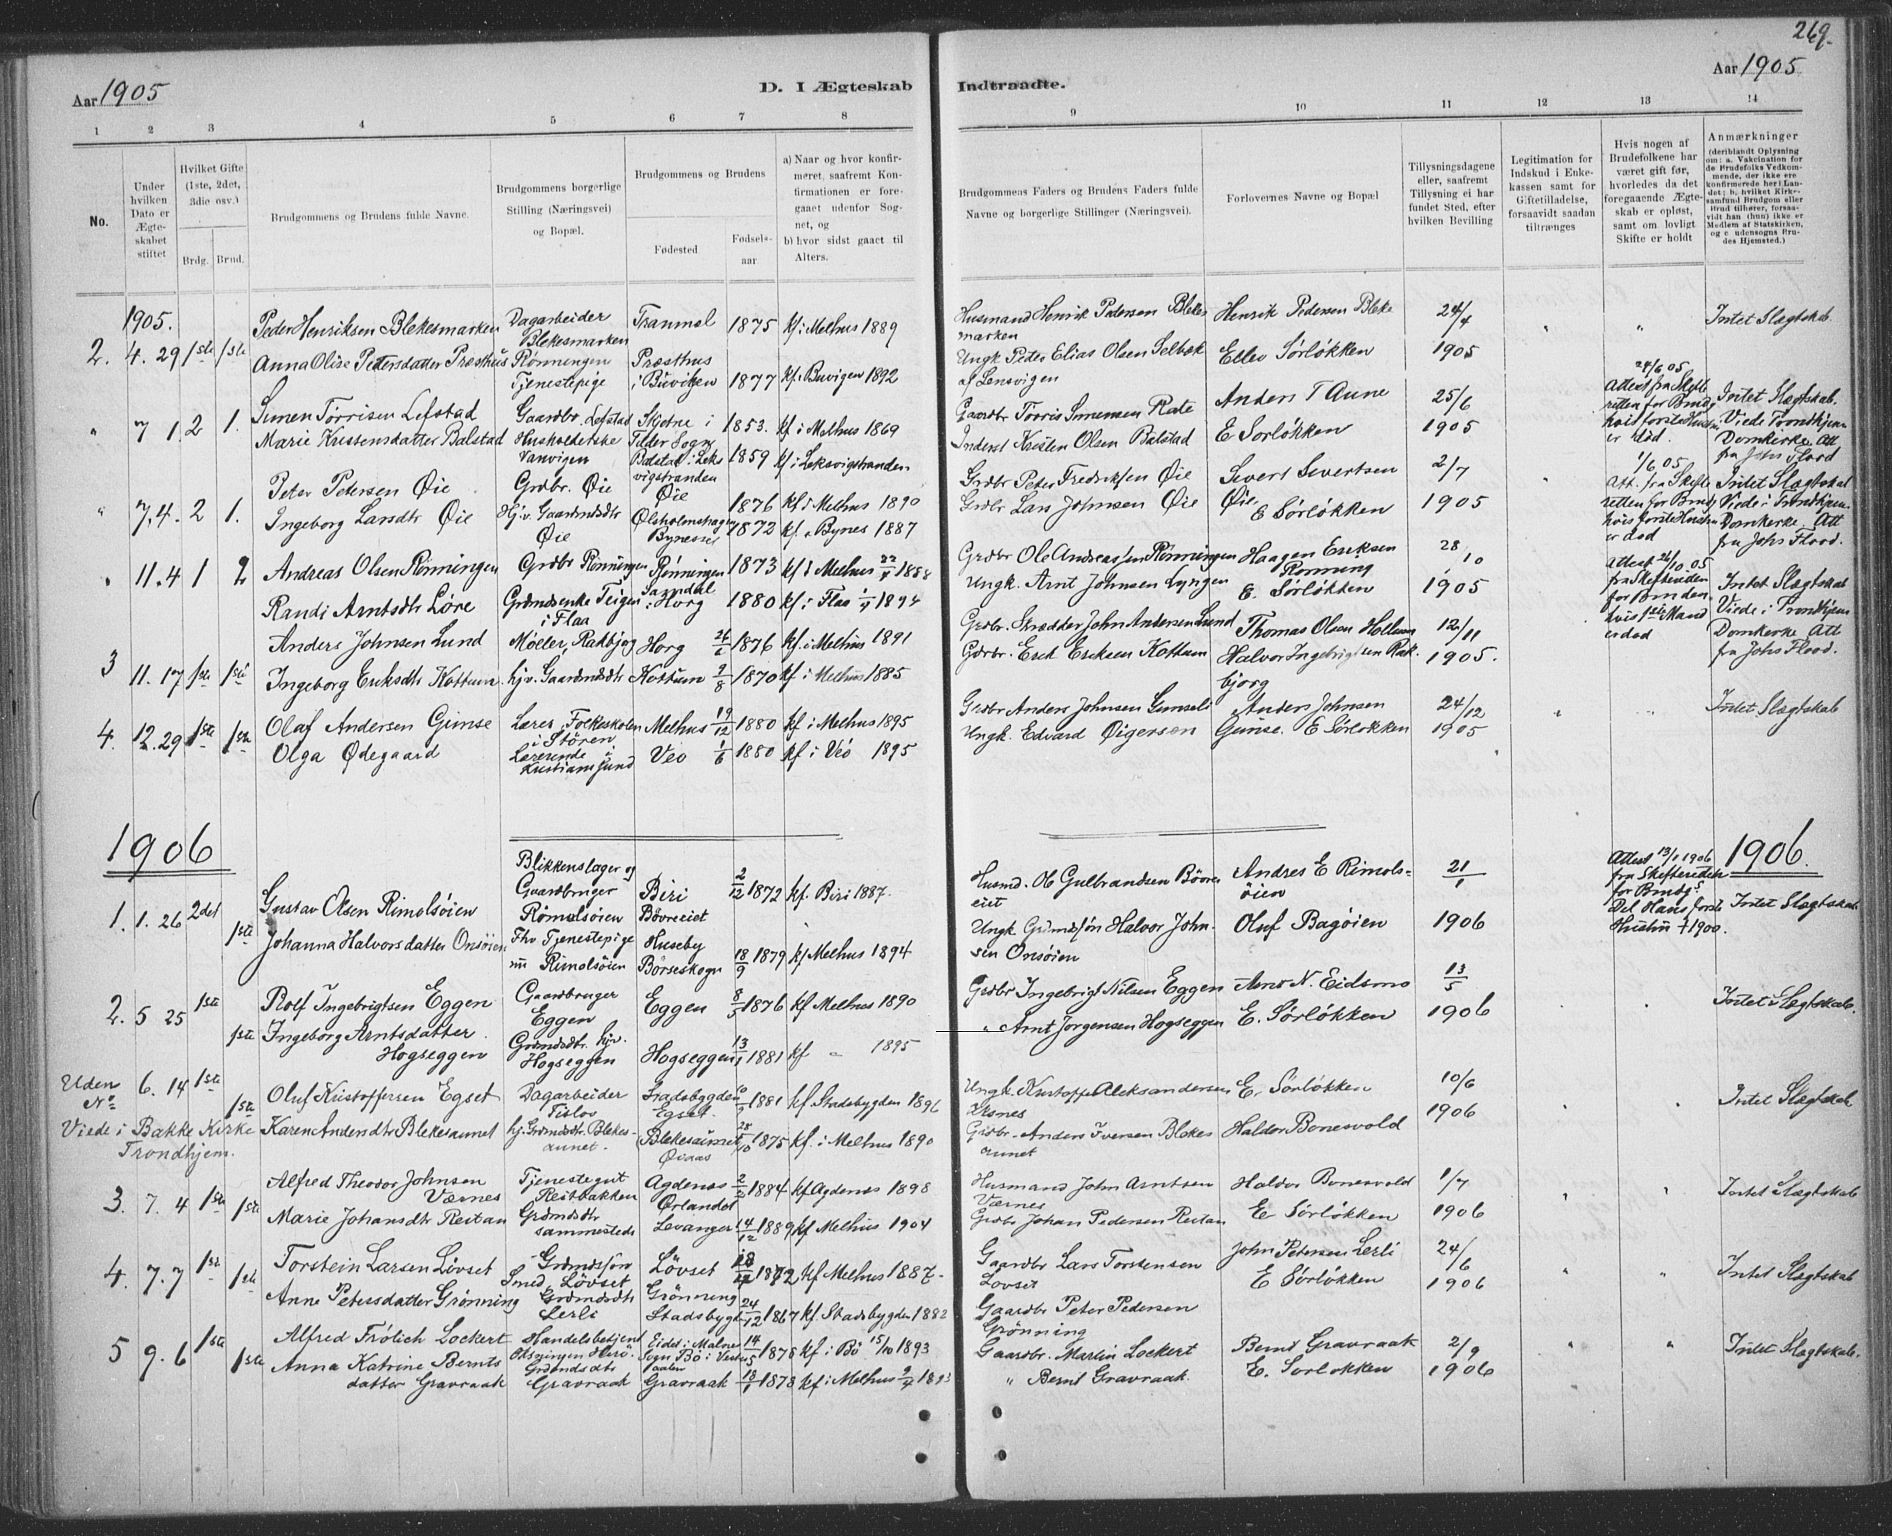 269.
Aar 1905
D. I Ægteskab Indtraadte.
Aar 1905
1 2 3 4 5 6 7 8 9 10 11 12 13 14
No.
Under hvilken Dato er Ægteskabet stiftet
Hvilket Gifte (1ste, 2det, 3die osv.)
Brdg. Brud.
Brudgommens og Brudens fulde Navne.
Brudgommens borgerlige Stilling (Næringsvei) og Bopæl.
Brudgommens og Brudens
Fødested
Fødselsaar
a) Naar og hvor konfirmeret, saafremt Konfirmationen er foregaaet udenfor Sognet, og
b) hvor sidst gaaet til Alters.
Brudgommens Faders og Brudens Faders fulde Navne og borgerlige Stillinger (Næringsvei).
Forlovernes Navne og Bopæl
Tillysningsdagene eller, saafremt Tillysning ei har fundet Sted, efter hvilken Bevilling
Legitimation for Indskud i Enkekassen samt for Giftetilladelse, forsaavidt saadan tiltrænges
Hvis nogen af Brudefolkene har været gift før, hvorledes da det foregaaende Ægteskab er opløst, samt om lovligt Skifte er holdt
Anmærkninger
(deriblandt Oplysning om: a. Vakcination for de Brudefolks Vedkommende, der ikke ere konfirmerede her i Landet; b. hvilket Kirkesamfund Brudgom eller Brud tilhører, forsaavidt han (hun) ikke er Medlem af Statskirken, og c. udensogns Brudes Hjemsted.)
1905.
Peder Henriksen Blekesmarken Dagarbeider Blekesmarken Tranmel 1875 kf i Melhus 1889 Husmand Henrik Pedersen Blekesmarken Henrik Pedersen Bleke 24/4 Intet Slægtskab
2. 4. 29 1ste 1ste Anna Olise Petersdatter Præsthus Rønningen Tjenestepige Præsthus i Buviken 1877 kf. i Buvigen 1892 Ungk Peter Elias Olsen Selbæk af Lensvigen Ellev Sørløkken 1905
" 7 1. 2 1. Simen Torrisen Lefstad Gaardbr. Lefstad 1853. kf i Melhus 1869 Gaardbr Anders T Aune 25/6 24/6 05 Attest fra Skifteretten for Brudg hvis første Hustru er død. Intet Slægtskab. Viede Trondhjem Domkirke Att fra Johs Flood
Marie Kristensdatter Balstad Husholderske Vanvigen Balstad i Leksvigstranden 1859 kf i Leksvigstranden Inderst Kristen Olsen Balstad E Sørløkken 1905
" 7. 4. 2 1. Peter Petersen Øie Grdbr. Øie Øie 1876 kf i Melhus 1890 Grdbr Peter Fredriksen Øie Sivert Sivertsen Øie 2/7 1/6 05 Att. fra Skifteretten for Brudg hvis første Hustru er død Intet Slægtskab Viede i Trondhjem Domkirke. Att fra Johs Flood.
Ingeborg Larsdtr Øie Hj.v. Gaardmdsdtr Øie Bynesset 1872 kf. i Bynes 1887 Grdbr Lars Johnsen Øie E Sørløkken 1905
" 11. 4 1 2 Andreas Olsen Rønningen Grdbr Rønningen Rønningen 1873 kf i Melhus 1888 Grdbr Ole Andreassen Rønningen Haagen Eriksen Rønning 28/10 Attest 26/10 05 fra Skifteretten for Bruden hvis 1ste Mand er død Intet Slægtskab Viede i Trondhjem Domkirke Att fra Johs Flood.
Randi Arntsdtr Løre Grdmdsenke Teigen i Flaa i Horg 1880 kf. i Flaa 1894 Ungk. Arnt Johnsen Lyngen E. Sørløkken 1905
3 11. 17 1ste 1ste Anders Johnsen Lund Møller, Rakbjog Horg 1876 kf. i Melhus 1891 Grdbr. Skrædder John Andersen Lund Thomas Olsen 12/11
Ingeborg Eriksdtr Kottum hj.v. Gaardmdsdtr Kottum 1870 kf i Melhus 1885 Gdrbr. Erik Eriksen Kottum Halvor Ingebrigtsen Rakbjørg 1905.
4. 12. 29 1ste 1ste Olaf Andersen Gimse Lærer, Folkeskolen i Støren Melhus 19/12 1880 kf i Melhus 1895 Grdbr Anders Johnsen Anders Johnsen Gimse. 24/12 Intet Slægtskab
Olga Ødegaard Lærerinde i Kristiansund Veo 1/6 1880 kf. i Veö 1895 Ungk. Edvard Øigersen E Sørløkken 1905
1906 1906.
1. 1. 26 2det 1ste Gustav Olsen Rimolsöien Blikkenslager og Gaardbruger Biri Bövreeiet 2/12 1872 kf. Biri 1887. Husmd. Gulbrandsen Bövreeiet Andres E Rimolsöien 21/1 Attest 13/1 1906 fra Skifteretten for Brudg. Hans første Hustru † 1900. Intet Slægtskab
Johanna Halvorsdatter Onsöien Fhv Tjenestepige nu Rimolsöien Huseby Börseskogn 18/9 1879 kf Melhus 1894 Ungk. Halvor Johnsen Onsöien Oluf Bagöien 1906
2. 5 25 1ste 1ste Rolf Ingebrigtsen Eggen Gaardbruger Eggen Eggen 8/5 1876 kf Melhus 1890 Grdbr Ingebrigt Nilsen Eggen Arnt N. Eidsmo 13/5 Intet Slægtskab.
Ingeborg Arntsdatter Hogseggen Grdmdsdtr. hjv. Hogseggen Hogseggen 1881 kf " 1895 " Arnt Jørgensen Hogseggen E. Sørløkken 1906
Uden No 6. 14 1ste 1ste Oluf Kristoffersen Egset Dagarbeider Stadsbygden Egset. 1881 kf. Stadsbygden 1896 Ungk. Kristoffer Aleksandersen E. Sørløkken 10/6 Intet Slægtskab
Viede i Bakke Kirke Trondhjem. Karen Andersdtr Blekesaunet hj. Grdmdsdtr. Blekesaunet. Blekesaunet 28/10 1875 kf. i Melhus 1890 Grdbr. Anders Iversen Blekesaunet Haldor Bonesvold 1906
3. 7. 4 1ste 1ste Alfred Theodor Johnsen Værnes Tjenestegut Reitbakken Agdenes Ørlandet 2/2 1884 kf Agdenes 1898 Husmand John Arntsen Værnes Haldor Bonesvold 1/7 Intet Slægtskab
Marie Johansdtr Reitan Grdmdsdtr sammesteds Levanger 14/12 1889 kf Melhus 1904 Grdbr Johan Pedersen Reitan E. Sørløkken 1906
4. 7. 7 1ste 1ste Torstein Larsen Lövset Grdmdssön Smed, Lövset Lövset 1872 kf Melhus 1887. Gaardbr Lars Torstensen Lovset John Petersen Lerli 24/6 Intet Slægtskab
Anne Petersdatter Grönning Grdmdsdtr Lerli Grönning Stadsbygd 24/12 1867 kf. Stadsbygden 1882 Gaardbr Peter Pedersen Grönning E Sørløkken 1906
5 9. 6 1ste 1ste Alfred Frölich Lockert Handelsbetjent 14/5 1878 kf. i Bö 15/10 1893 Gaardbr. Martin Lockert Bernt Gravraak 2/9 Intet Slægtskab.
Anna Katrine Berntsdatter Gravraak Grdmdsdtr Gravraak Gravraak 18/1 1878 kf i Melhus 1893 " Bernt Gravraak. E. Sørløkken 1906